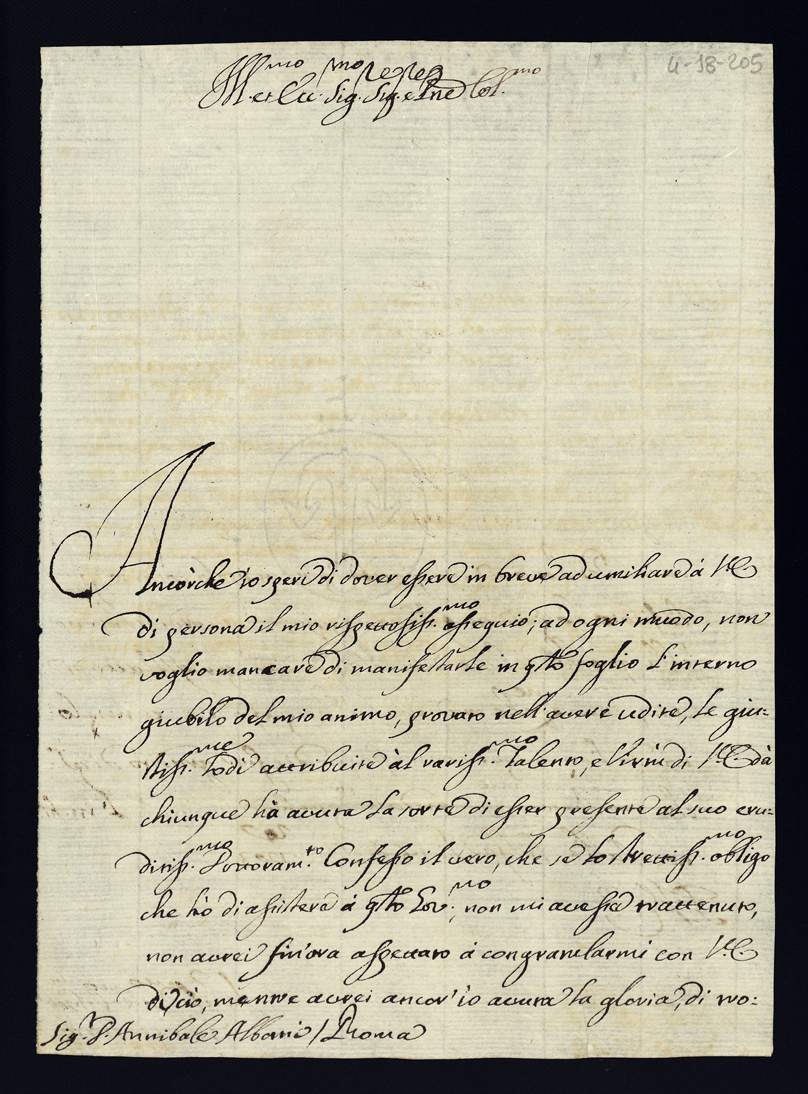 4-18-205
Ill.mo et Ecc.mo Sig.re Sig.re e Pne Col.mo
Ancorche io speri di dover essere in breve ad umiliare à V.E.
di persona il mio rispettosiss.mo ossequio; ad ogni modo, non
voglio mancare di manifestarle in q.sto foglio l'interno
giubilo del mio animo, provato nell'avere udite, le giu=
stiss.me lodi attribuite àl rariss.mo Talento, e Virtù di V.E. dà
chiunque hà avuta la sorte di esser presente al suo eru=
ditiss.mo Dottoram.to Confesso il vero, che se lo strettiss.mo obligo
che hò di assistere à q.sto Gov.no, non mi avesse trattenuto,
non avrei fin'ora aspettato à congratularmi con V.E.
di ciò, mentre avrei ancor'io avuta la gloria, di tro=
Sig.r D. Annibale Albani / Roma